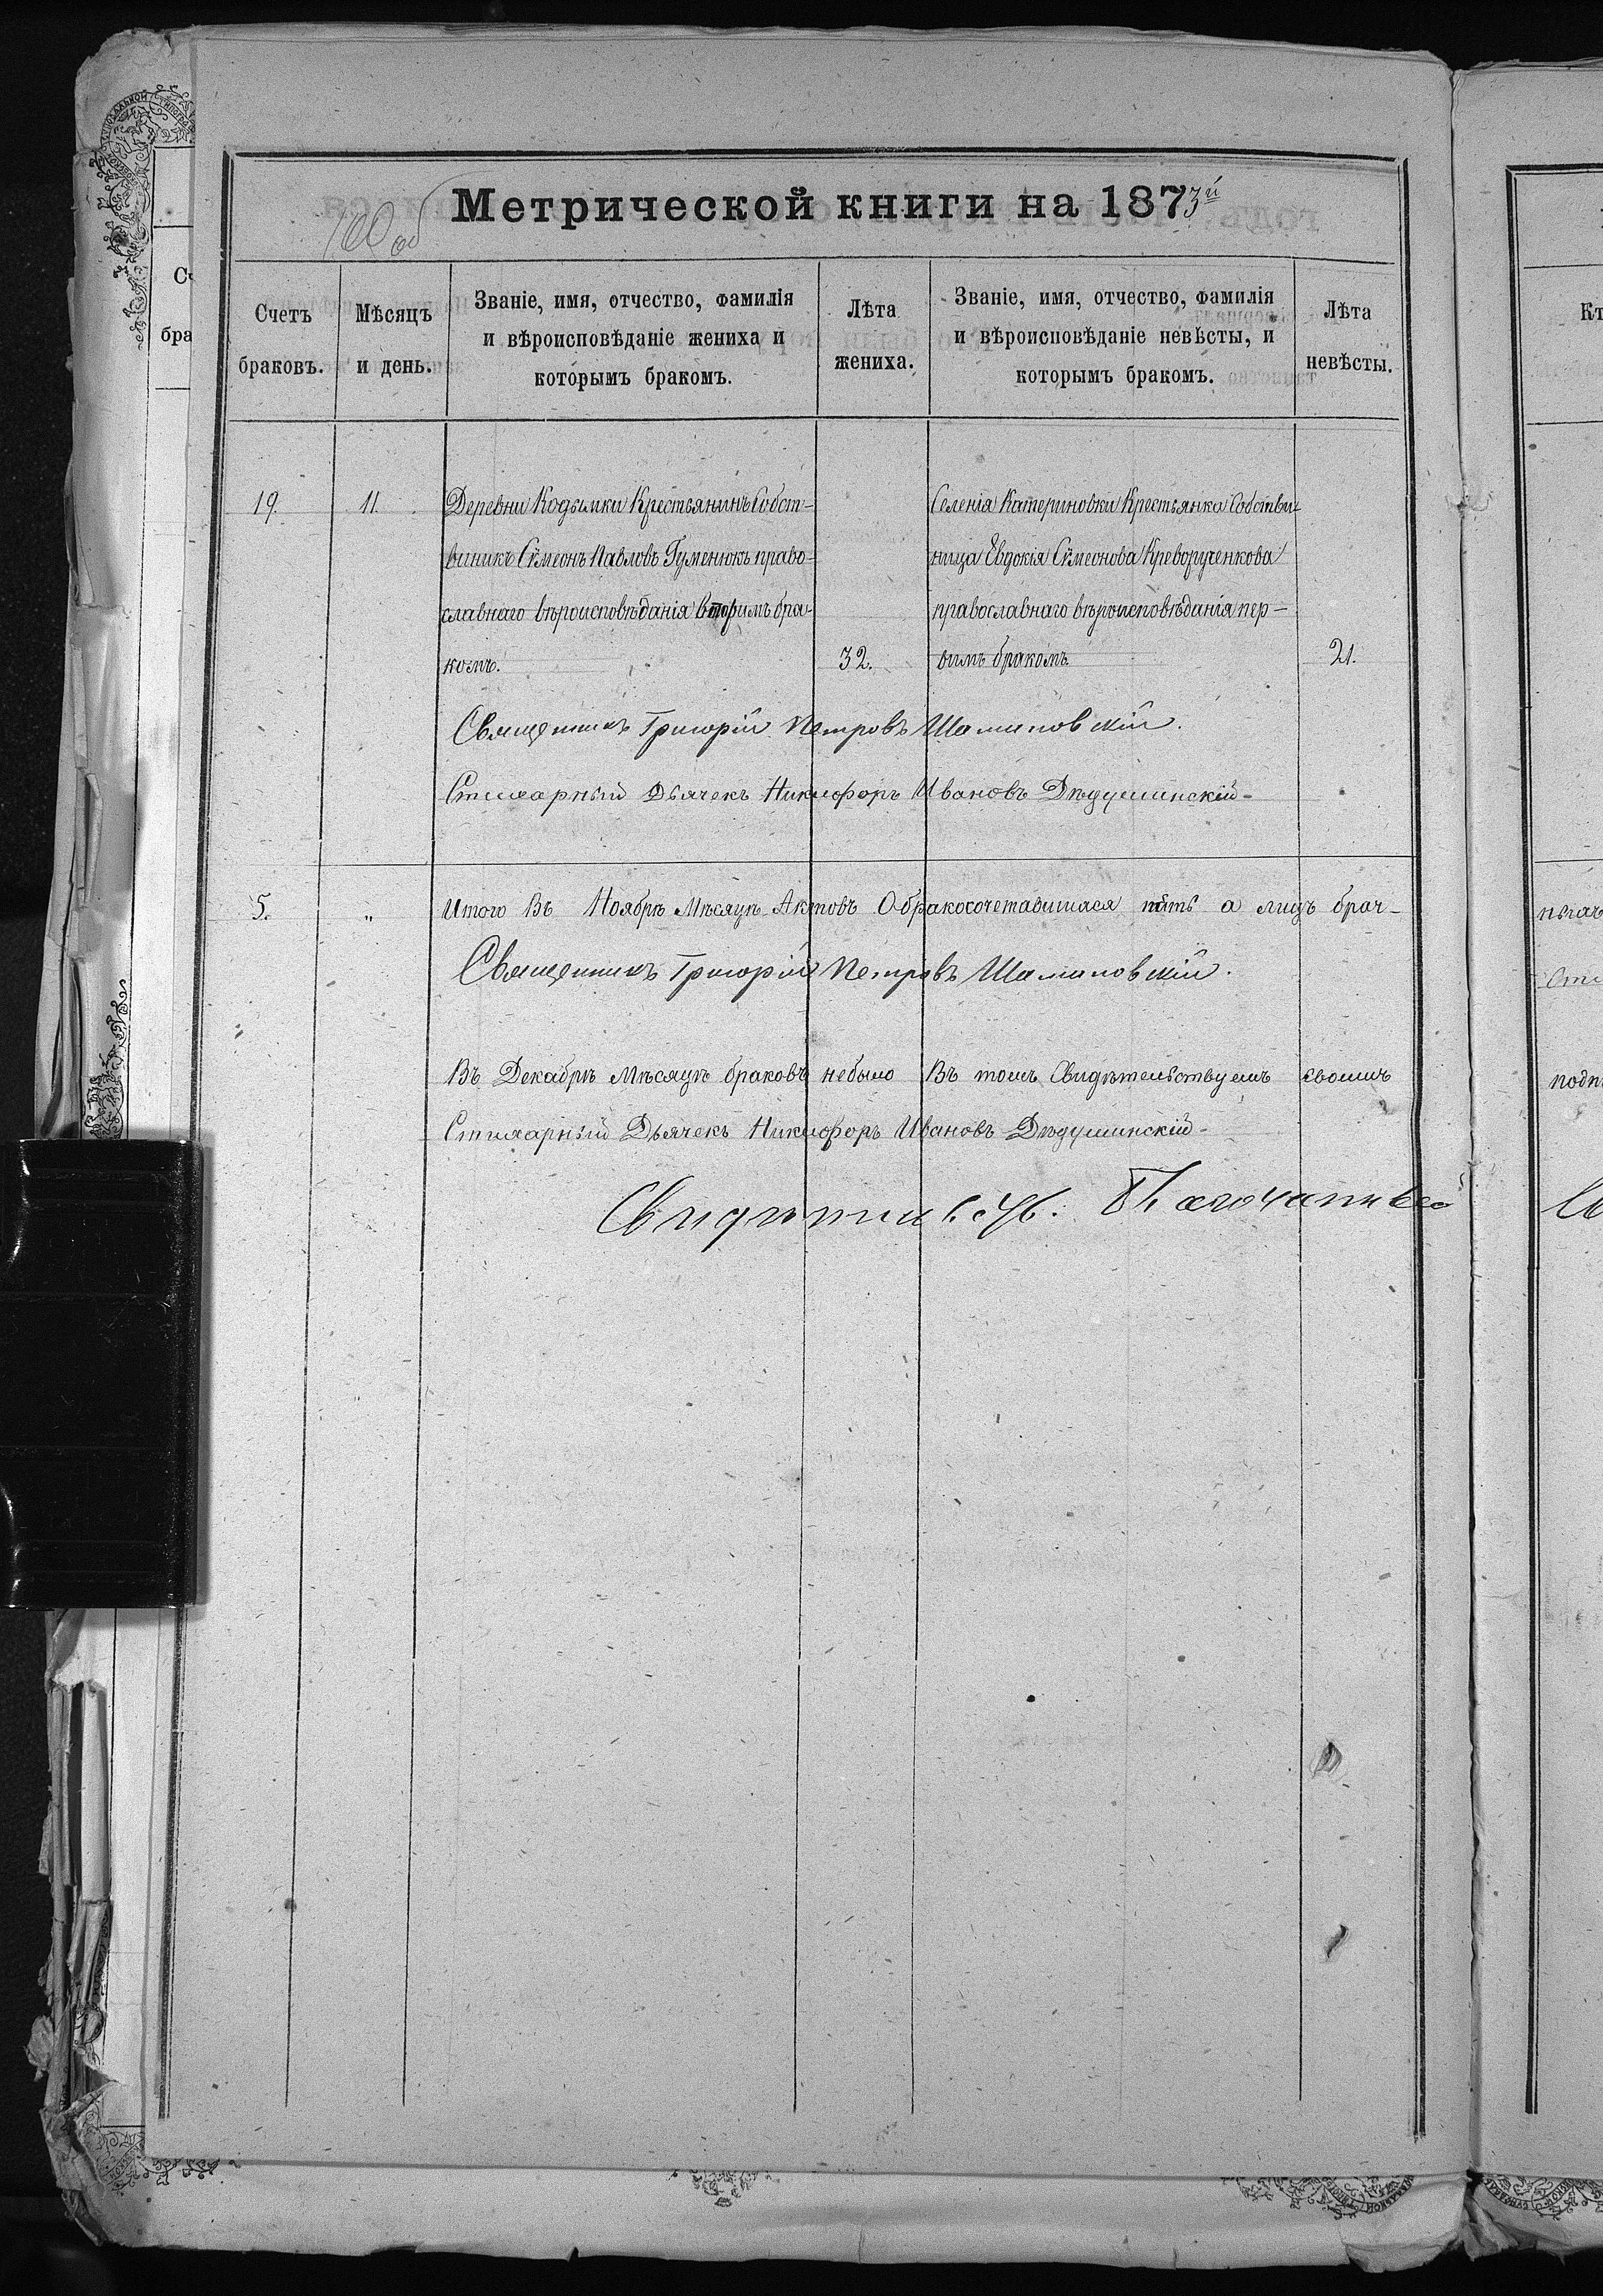 Метрической книги на 1873й
160 об
Счетъ браковъ.
Мѣсяцъ и день.
Званіе, имя, отчество, фамилія
и вѣроисповѣданіе жениха и
которымъ бракомъ.
Лѣта жениха.
Званіе, имя, отчество, фамилія
и вѣроисповѣданіе невѣсты, и
которымъ бракомъ.
Лѣта невѣсты.
19. 11.
Деревни Кодымки Крестьянинъ Собст-
вникъ Сѵмеонъ Павловъ Гуменюкъ право-
славнаго вѣроисповѣданія вторимъ бра-
комъ.
32.
Селенія Катериновки Крестьянка Собстви-
ница Евдокія Сѵмеонова Креворученкова
православнаго вѣроисповѣданія пер-
вимъ бракомъ
21.
Священникъ Григорій Петровъ Шаминовскій.
Стихарный Дьячекъ Никифоръ Ивановъ Дѣдушинскій-
5. " Итого Въ Ноябрѣ Мѣсяцѣ Актовъ О бракосочетавшихся пять а лицъ брач-
Священникъ Григорій Петровъ Шаминовскій.
Въ Декабрѣ Мѣсяцѣ браковъ небыло Въ томъ Свидѣтельствуемъ своимъ
Стихарный Дьячекъ Никифоръ Ивановъ Дѣдушинскій-